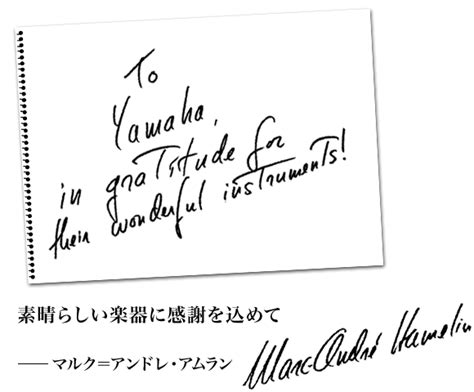 To
Yamaha,
in gratitude for
their wonderful instruments!
素晴らしい楽器に感謝を込めて
── マルク=アンドレ・アムラン
Marc-André Hamelin